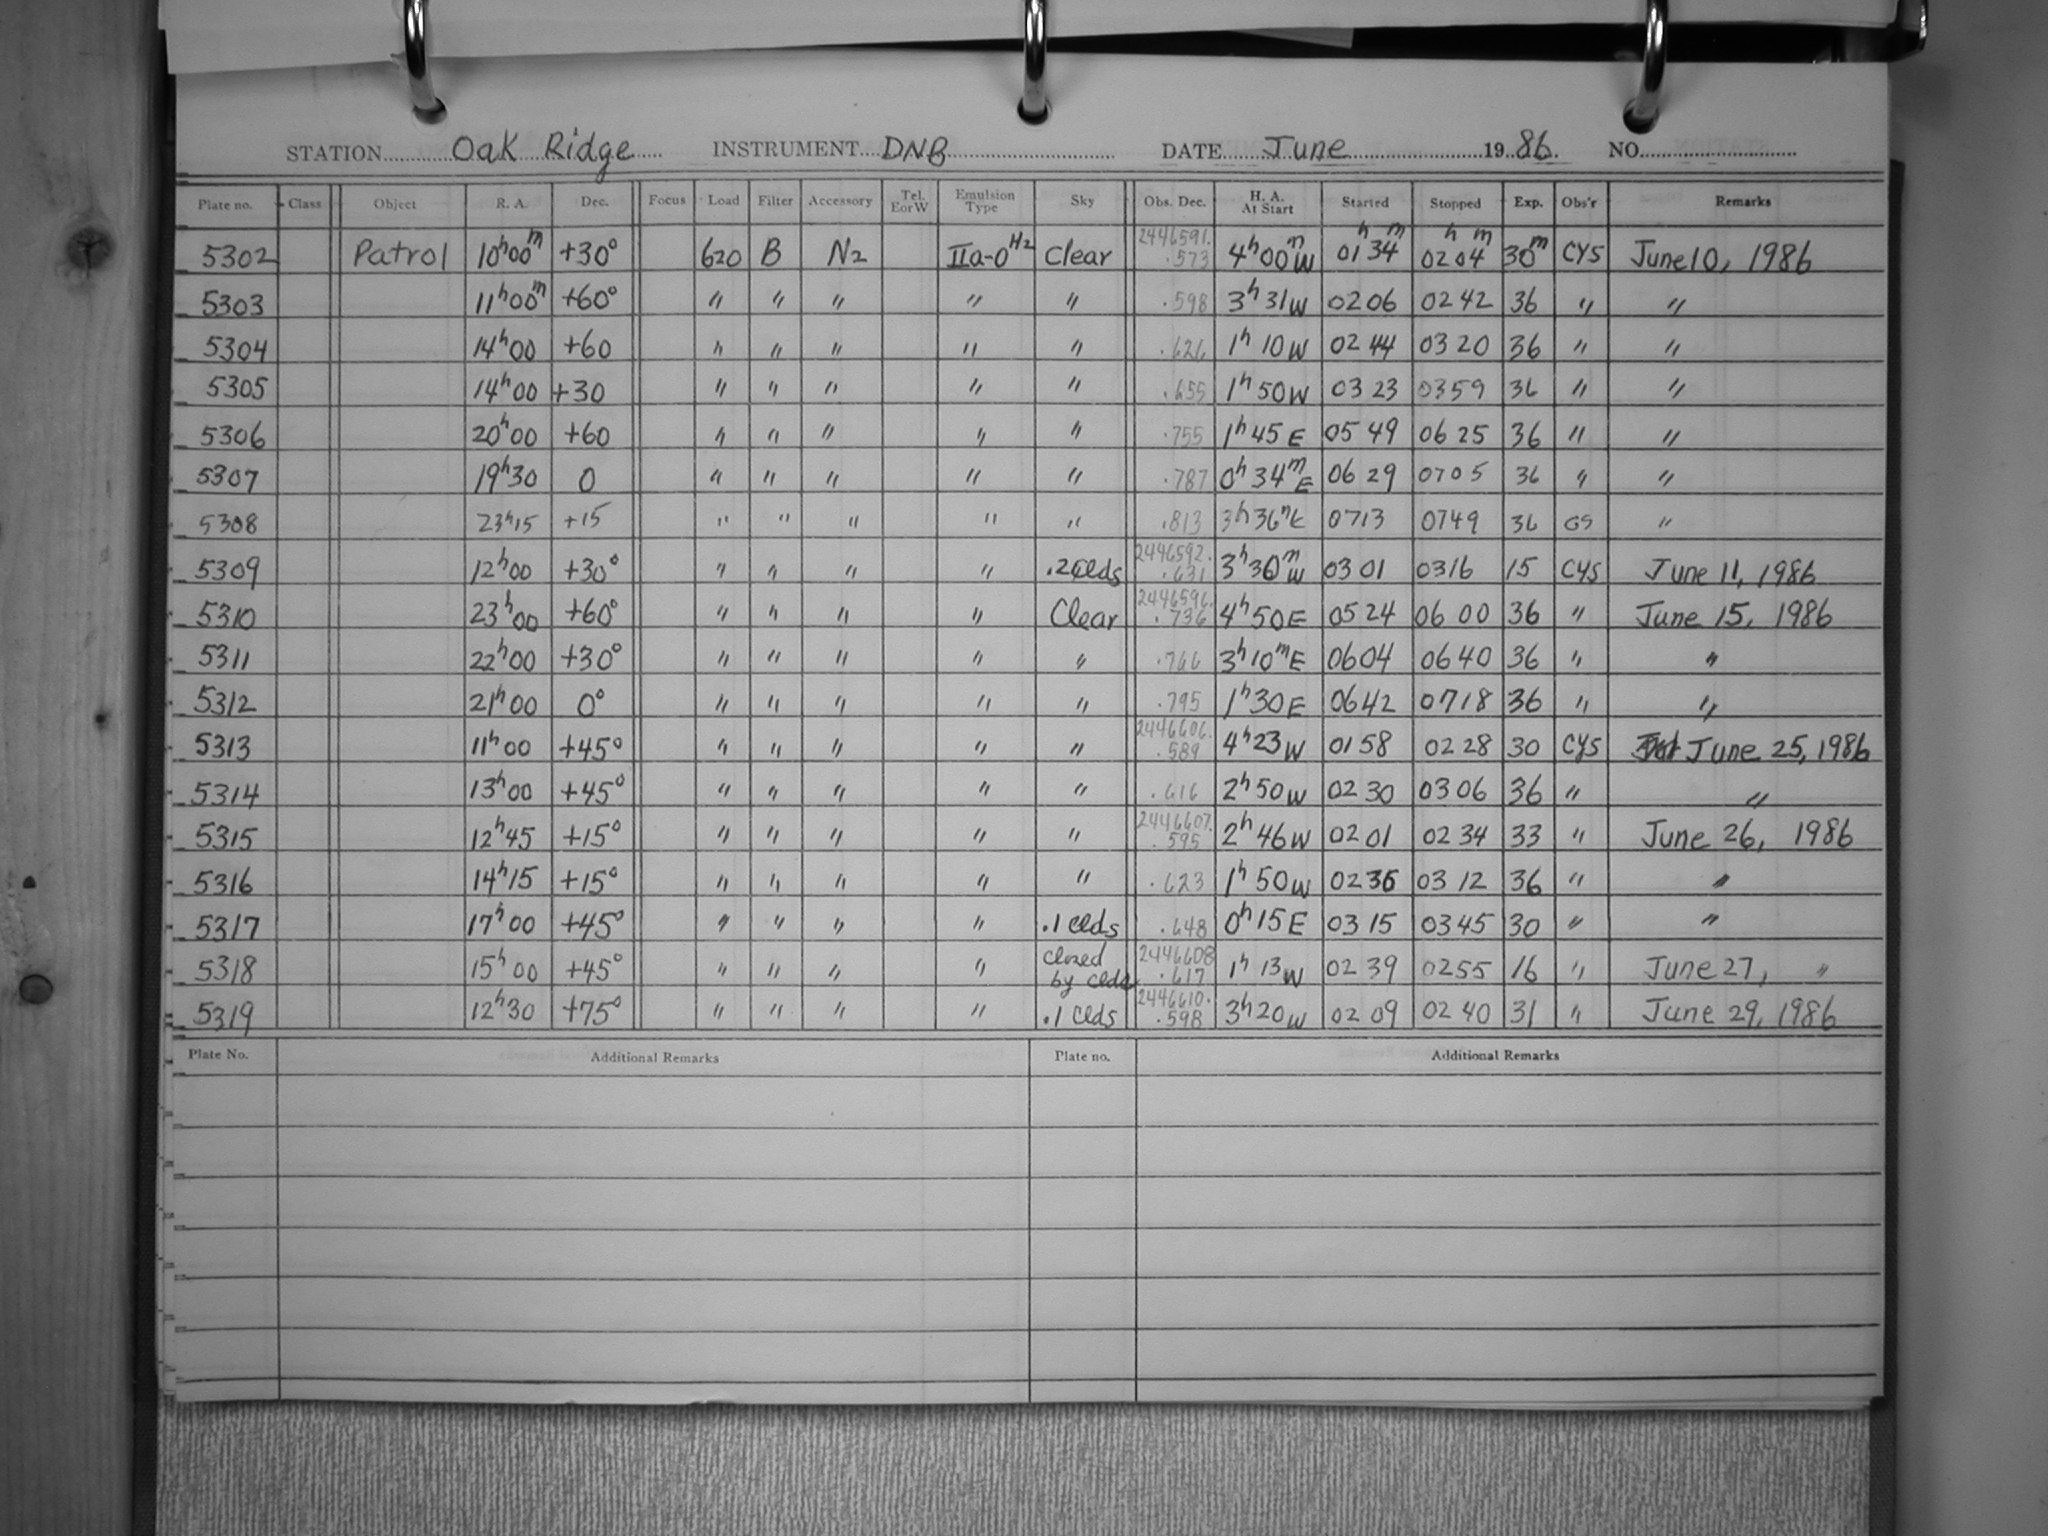 STATION Oak Ridge INSTRUMENT DNB DATE June 1986 NO.
Plate no. Class Object R. A. Dec. Focus Load Filter Accessory Tel. E or W Emulsion Type Sky Obs. Dec. H. A. At Start Started Stopped Exp. Obs'r Remarks
5302 Patrol 10h00m +30° 620 B N2 IIa-O H2 Clear 2446591.573 4h00mW 01h34m 02h04m 30m CYS June 10, 1986
5303 11h00m +60° " " " " " .598 3h31W 0206 0242 36 " "
5304 14h00 +60 " " " " " .626 1h10W 0244 0320 36 " "
5305 14h00 +30 " " " " " .655 1h50W 0323 0359 36 " "
5306 20h00 +60 " " " " " .755 1h45E 0549 0625 36 " "
5307 19h30 0 " " " " " .787 0h34mE 0629 0705 36 " "
5308 23h15 +15 " " " " " .813 3h36mE 0713 0749 36 GS "
5309 12h00 +30° " " " " .2 clds 2446592.631 3h30mW 0301 0316 15 CYS June 11, 1986
5310 23h00 +60° " " " " Clear 2446596.736 4h50E 0524 0600 36 " June 15, 1986
5311 22h00 +30° " " " " " .766 3h10mE 0604 0640 36 " "
5312 21h00 0° " " " " " .795 1h30E 0642 0718 36 " "
5313 11h00 +45° " " " " " 2446606.589 4h23W 0158 0228 30 CYS June 25, 1986
5314 13h00 +45° " " " " " .616 2h50W 0230 0306 36 " "
5315 12h45 +15° " " " " " 2446607.595 2h46W 0201 0234 33 " June 26, 1986
5316 14h15 +15° " " " " " .623 1h50W 0236 0312 36 " "
5317 17h00 +45° " " " " .1 clds .648 0h15E 0315 0345 30 " "
5318 15h00 +45° " " " " closed by clds 2446608.617 1h13W 0239 0255 16 " June 27, "
5319 12h30 +75° " " " " .1 clds 2446610.598 3h20W 0209 0240 31 " June 29, 1986
Plate No. Additional Remarks Plate no. Additional Remarks